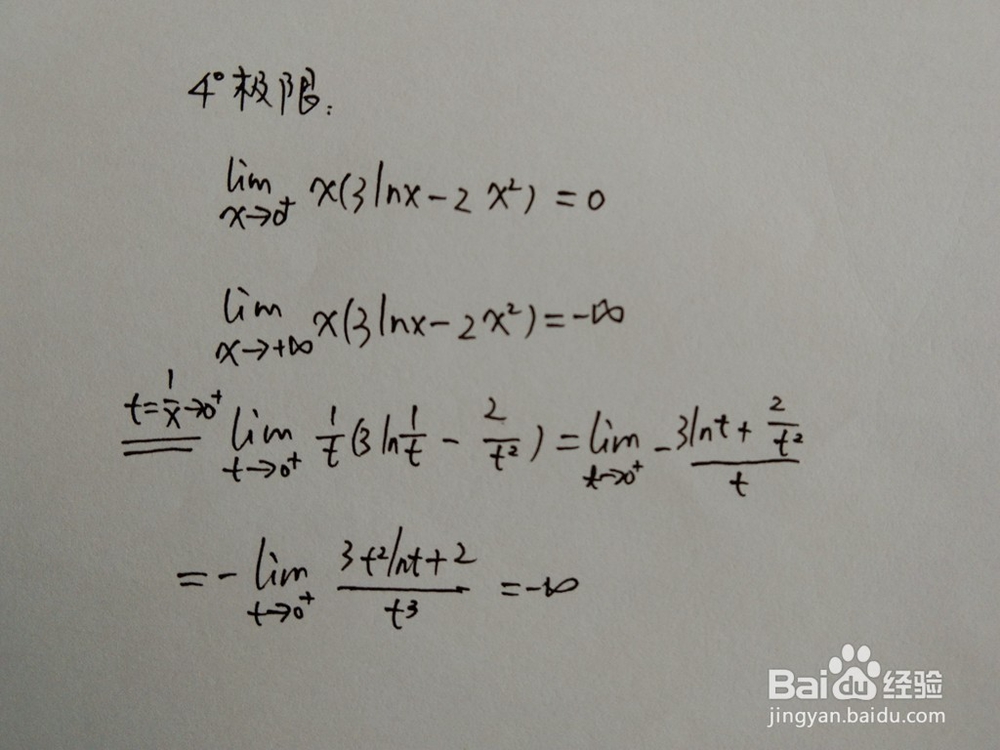 4° 极限:
lim x→0⁺ x(3lnx - 2x²) = 0
lim x→+∞ x(3lnx - 2x²) = -∞
t=1/x→0⁺ == lim t→0⁺ 1/t(3ln1/t - 2/t²) = lim t→0⁺ - (3lnt + 2/t²)/t
= - lim t→0⁺ (3t²lnt + 2)/t³ = -∞
Baidu 经验
jingyan.baidu.com